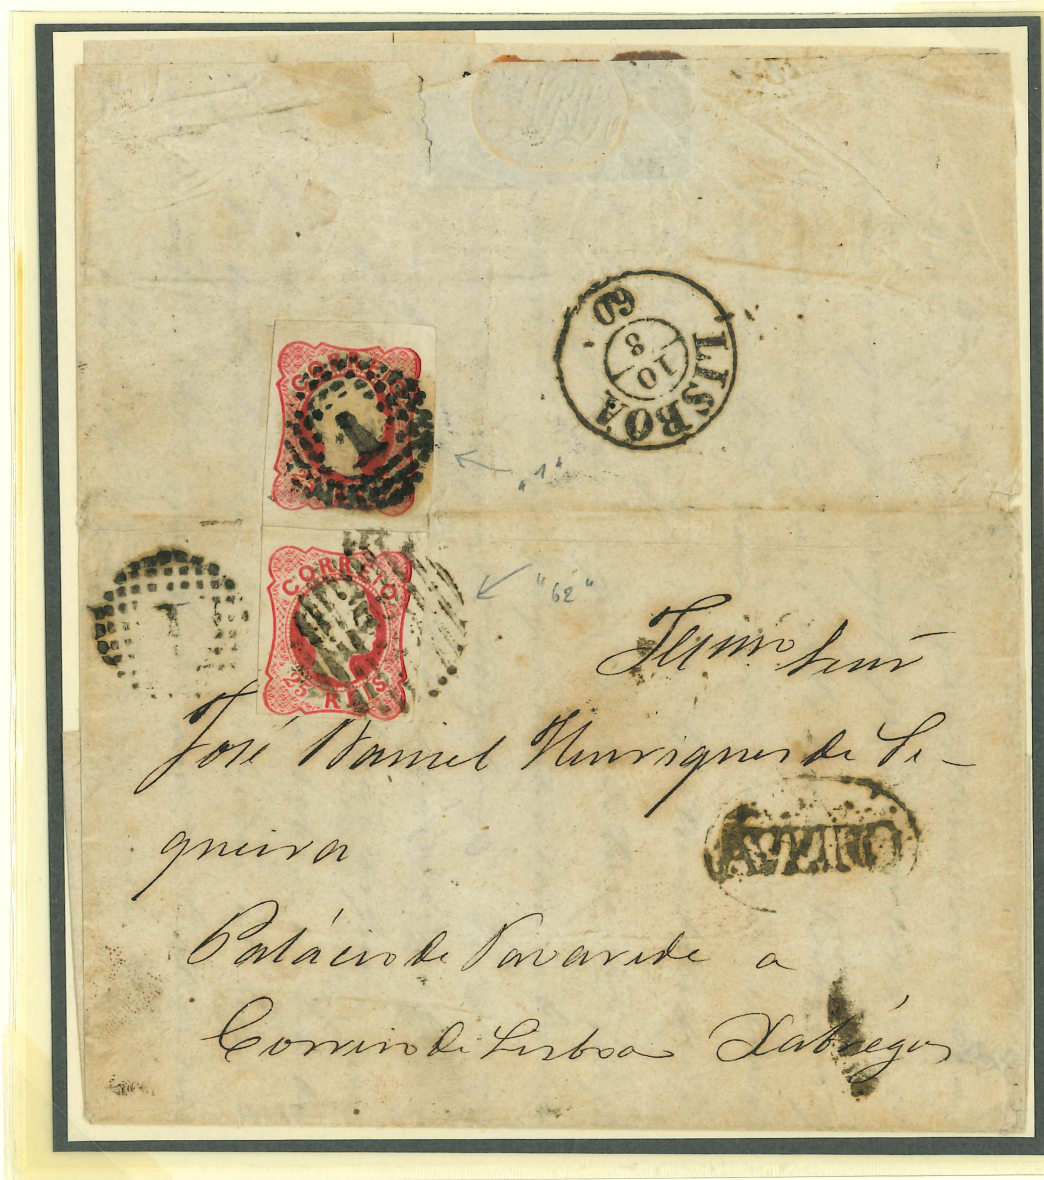 LISBOA
60
8
10
CORREIO
1
"1"
CORREIO
25 REIS
"62"
1
José Daniel Henriques de Se-
queira
Palácio de Pavarede a
Correio de Lisboa Xabregas